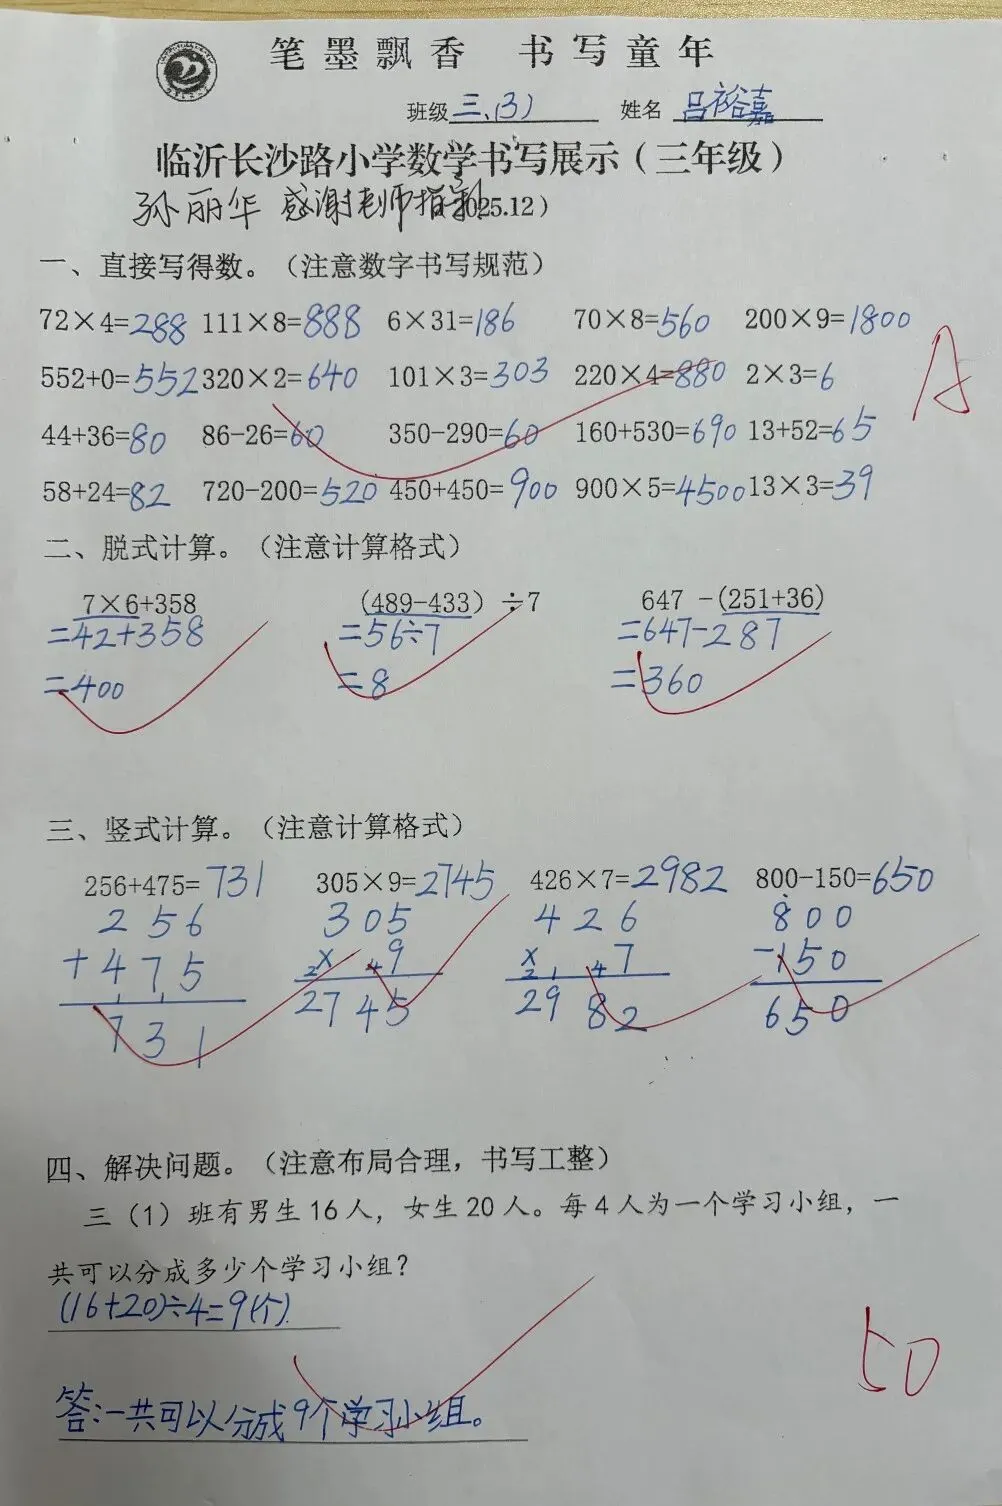 笔墨飘香 书写童年
班级 三、(3) 姓名 吕裕嘉
临沂长沙路小学数学书写展示（三年级）
孙丽华 感谢老师指 2025.12）
一、直接写得数。（注意数字书写规范）
72×4=288 111×8=888 6×31=186 70×8=560 200×9=1800
552+0=552 320×2=640 101×3=303 220×4=880 2×3=6
44+36=80 86-26=60 350-290=60 160+530=690 13+52=65
58+24=82 720-200=520 450+450=900 900×5=4500 13×3=39
A
二、脱式计算。（注意计算格式）
7×6+358 (489-433）÷7 647 -(251+36)
=42+358 =56÷7 =647-287
=400 =8 =360
三、竖式计算。（注意计算格式）
256+475=731 305×9=2745 426×7=2982 800-150=650
256 305 426 800
+475 ×9 ×7 -150
1 1 2 4 2 1 4
731 2745 2982 650
四、解决问题。（注意布局合理，书写工整）
三（1）班有男生16人，女生20人。每4人为一个学习小组，一
共可以分成多少个学习小组？
(16+20)÷4=9(个).
50
答:一共可以分成9个学习小组。